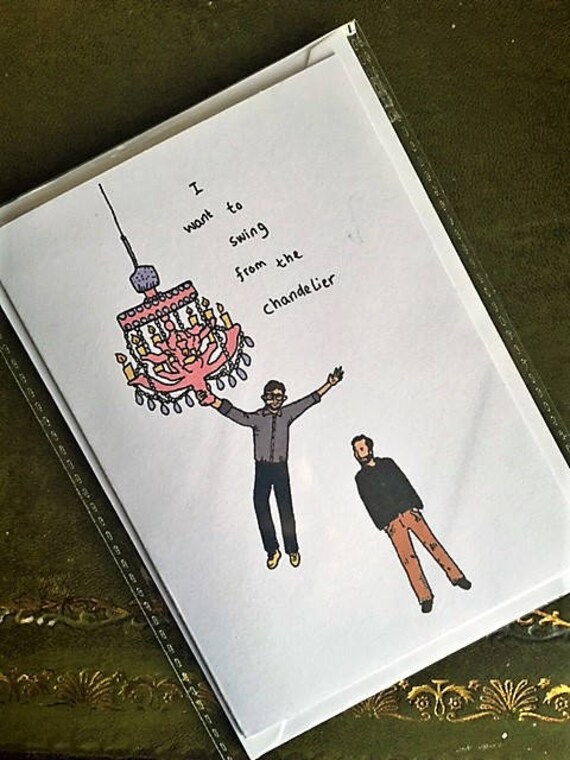 I
want to
swing
from the
chandelier